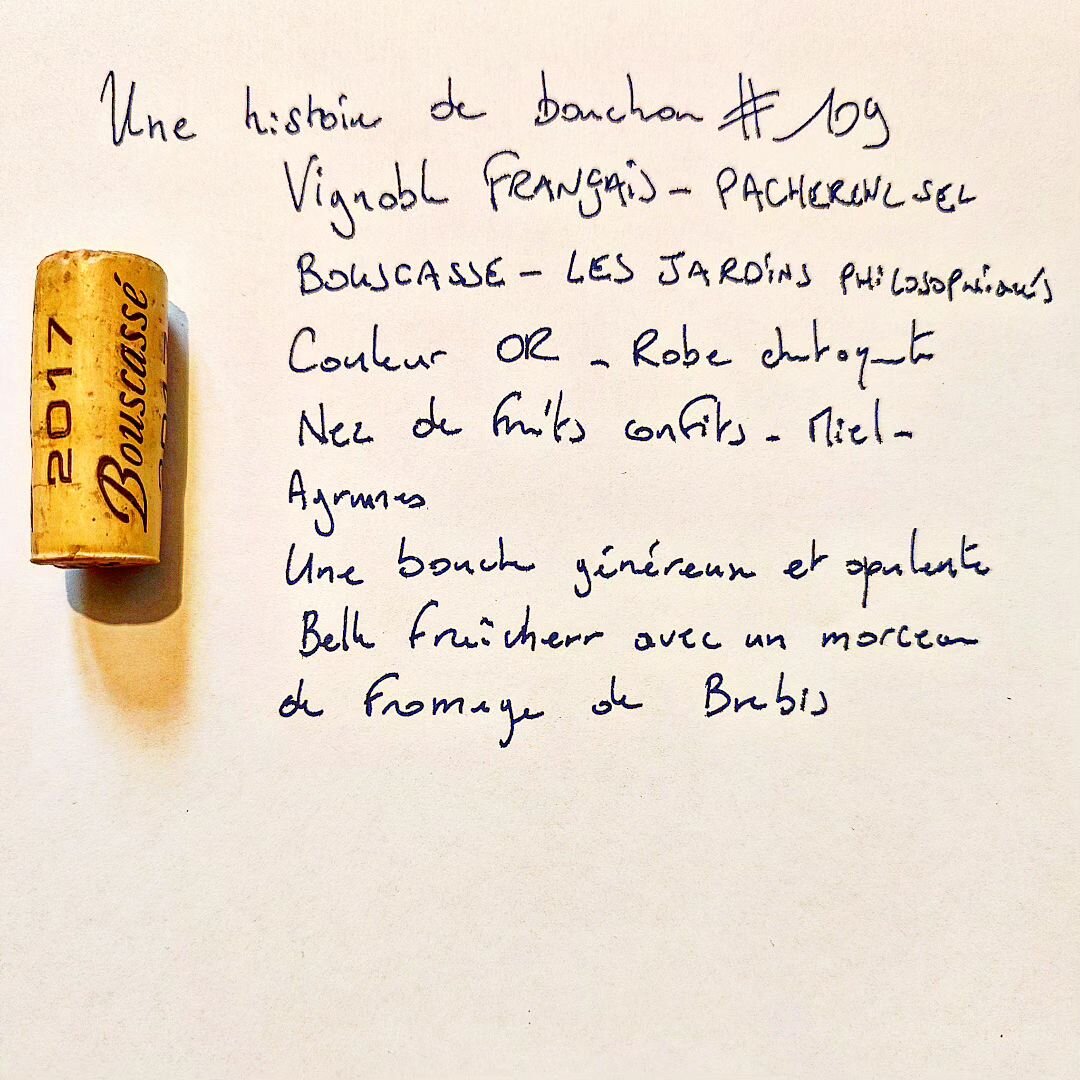 Une histoire de bouchon # 109
Vignoble FRANÇAIS - PACHERENC SEC
BOUSCASSE - LES JARDINS PHILOSOPHIQUES
Couleur OR - Robe chatoyante
Nez de fruits confits - Miel -
Agrumes
Une bouche généreuse et opulente
Belle fraîcheur avec un morceau
de fromage de Brebis
2017
Bouscassé